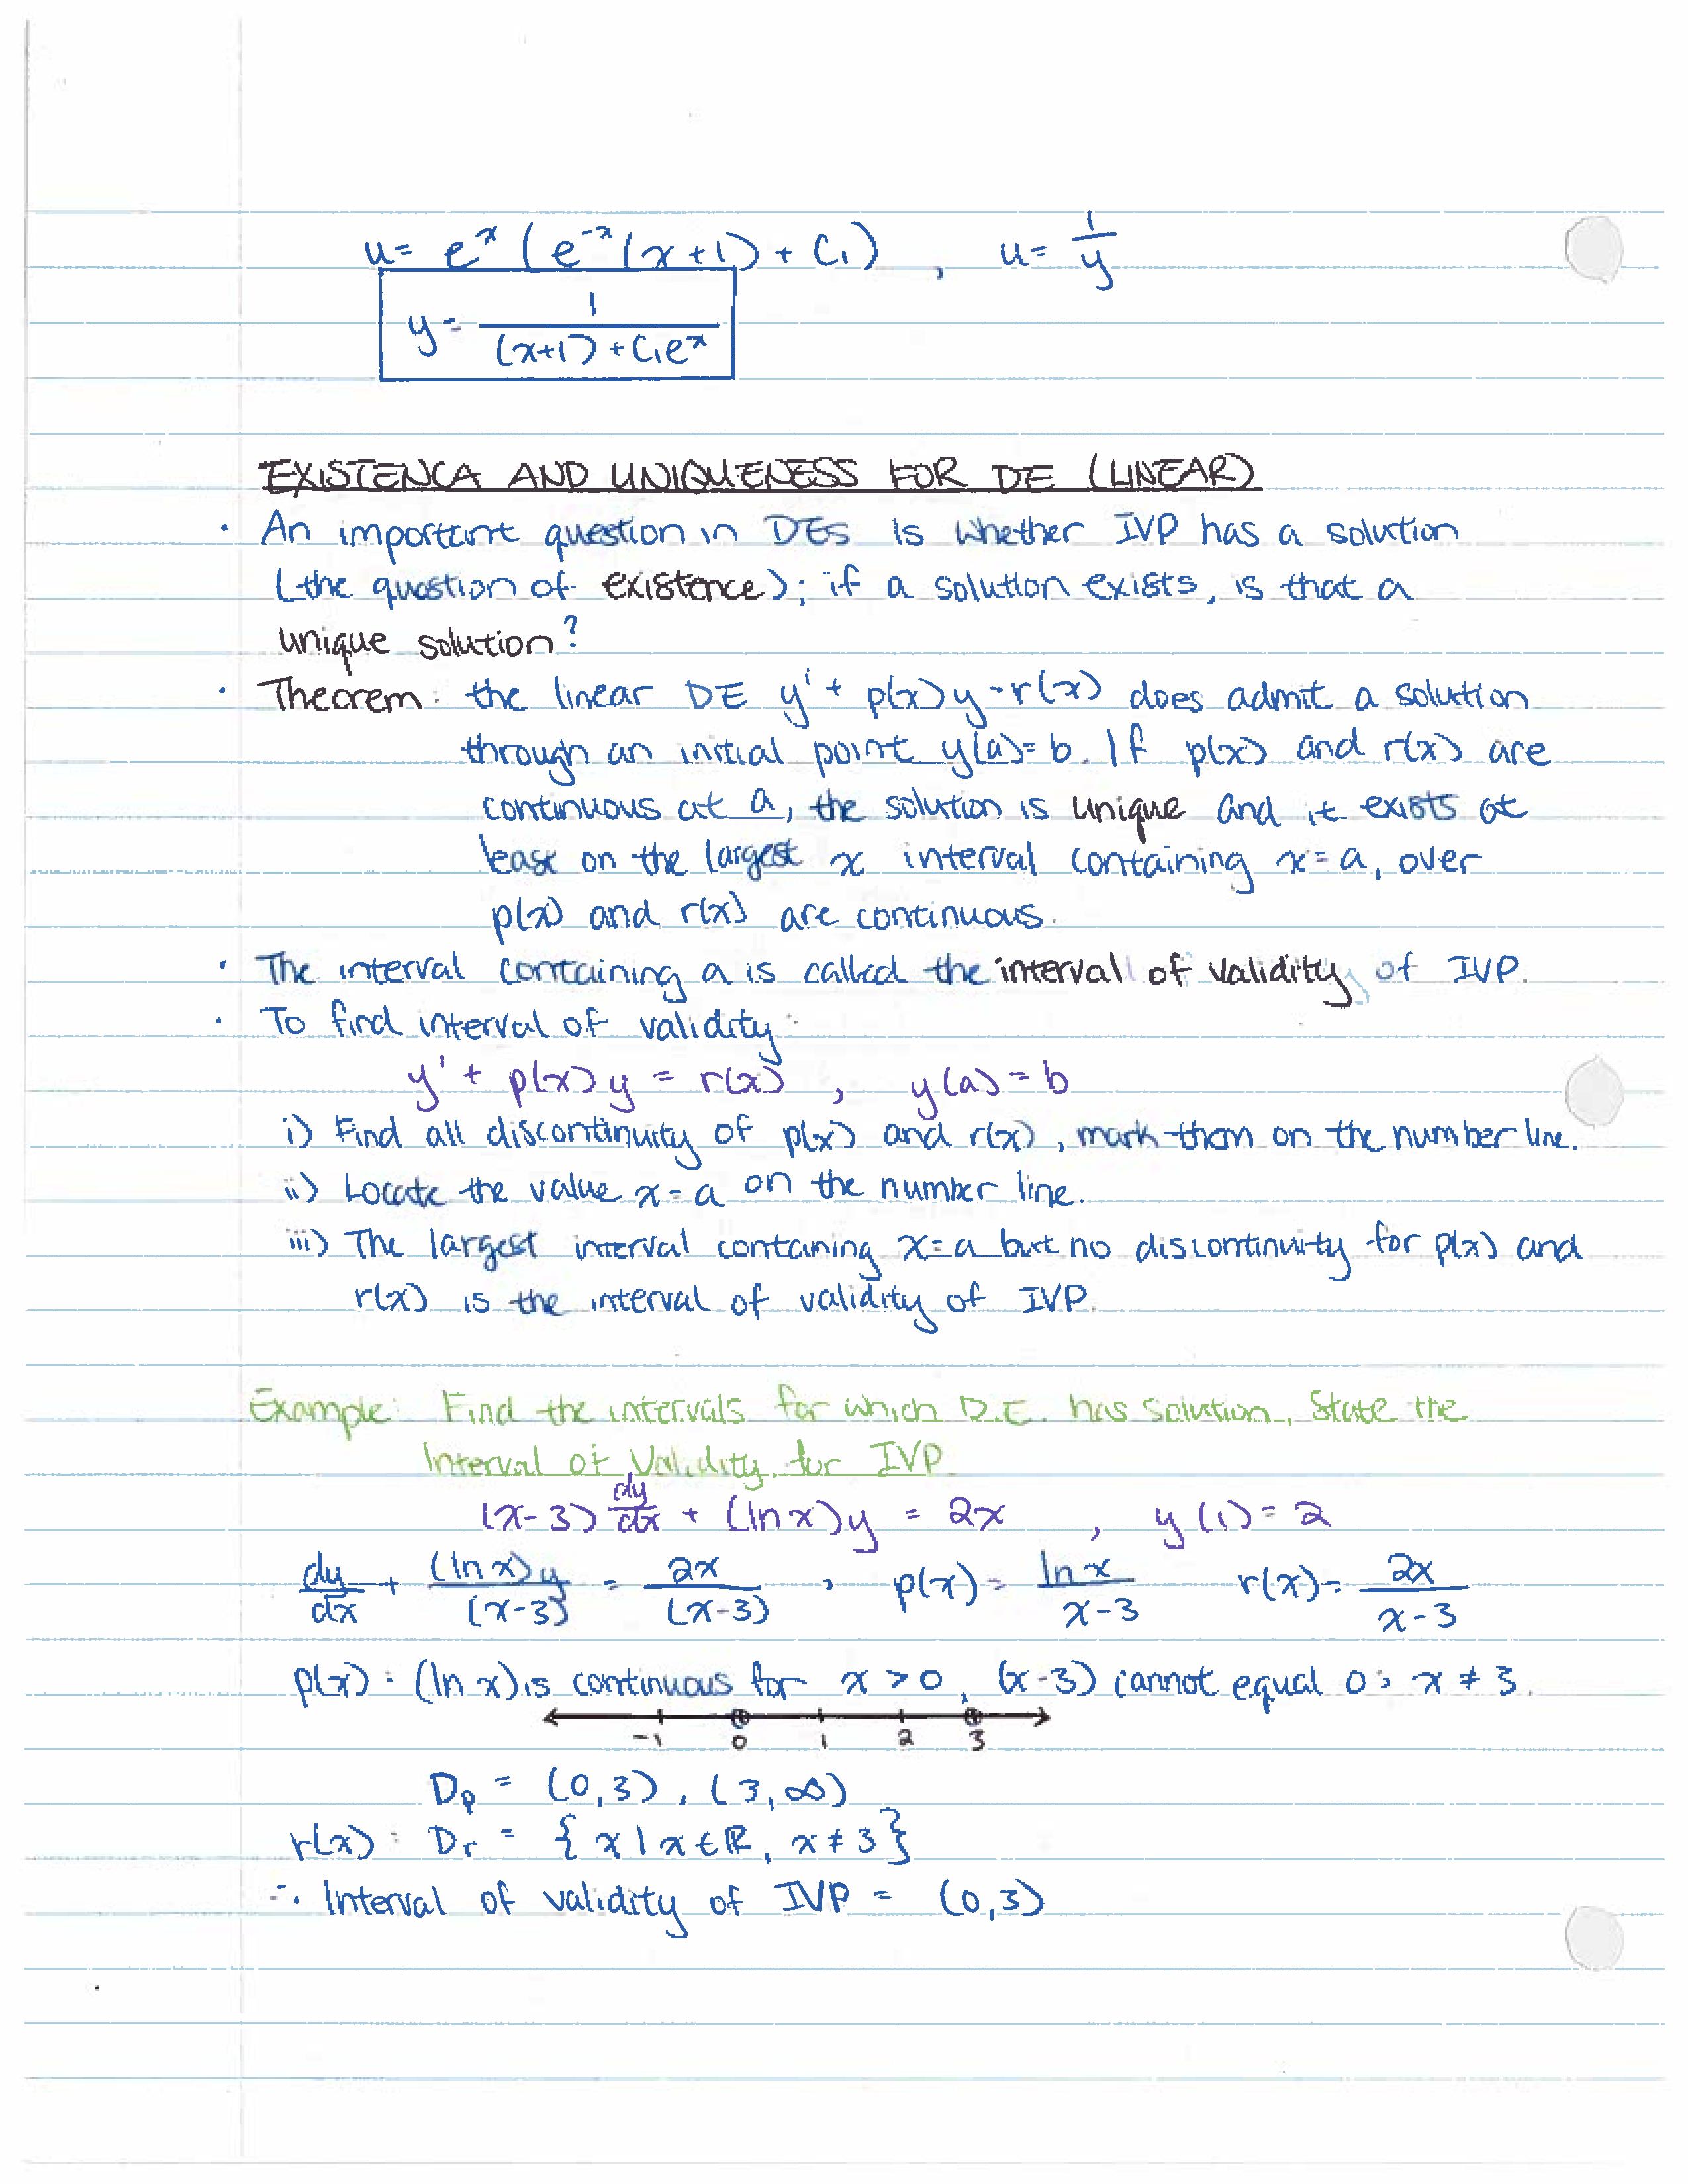 u = e^x (e^-x (x+1) + C₁) , u = 1/y
y = 1/((x+1) + C₁e^x)
EXISTENCA AND UNIQUENESS FOR DE (LINEAR)
· An important question in DEs is whether IVP has a solution
(the question of existence); if a solution exists, is that a
unique solution?
· Theorem: the linear DE y' + p(x)y = r(x) does admit a solution
through an initial point y(a) = b. If p(x) and r(x) are
continuous at a, the solution is unique and it exists at
least on the largest x interval containing x = a, over
p(x) and r(x) are continuous.
· The interval containing a is called the interval of validity of IVP.
· To find interval of validity:
y' + p(x)y = r(x) , y(a) = b
i) Find all discontinuity of p(x) and r(x), mark them on the number line.
ii) Locate the value x = a on the number line.
iii) The largest interval containing x = a but no discontinuity for p(x) and
r(x) is the interval of validity of IVP.
Example: Find the intervals for which D.E. has solution, State the
Interval of Validity for IVP.
(x-3) dy/dx + (ln x)y = 2x , y(1) = 2
dy/dx + (ln x)y/(x-3) = 2x/(x-3) , p(x) = ln x/x-3 r(x) = 2x/x-3
p(x): (ln x) is continuous for x > 0, (x-3) cannot equal 0; x ≠ 3.
-1 0 1 2 3
Dp = (0,3), (3,∞)
r(x): Dr = {x | x ∈ ℝ, x ≠ 3}
∴ Interval of validity of IVP = (0,3)